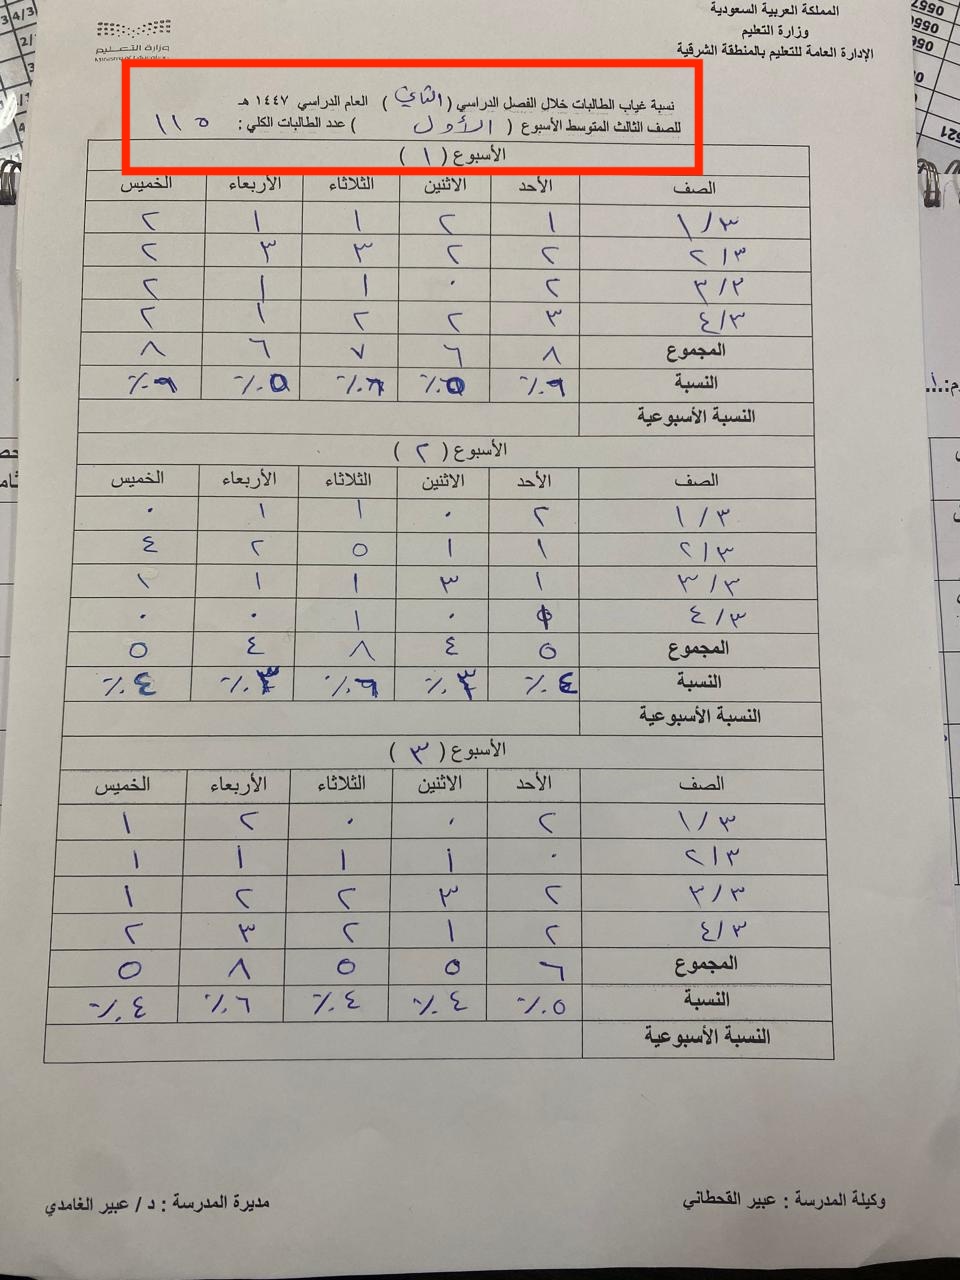 المملكة العربية السعودية
وزارة التعليم
الإدارة العامة للتعليم بالمنطقة الشرقية
وزارة التعليم
Ministry of Education
نسبة غياب الطالبات خلال الفصل الدراسي ( الثاني ) العام الدراسي ١٤٤٧ هـ
للصف الثالث المتوسط الأسبوع ( الأول ) عدد الطالبات الكلي : ١١٥
الأسبوع ( ١ )
الصف الأحد الاثنين الثلاثاء الأربعاء الخميس
١/٣ ١ ٢ ١ ١ ٢
٢/٣ ٢ ٢ ٣ ٣ ٢
٣/٣ ٢ ٠ ١ ١ ٢
٤/٣ ٣ ٢ ٢ ١ ٢
المجموع ٨ ٦ ٧ ٦ ٨
النسبة ٪٥ ٪٥
النسبة الأسبوعية
الأسبوع ( ٢ )
الصف الأحد الاثنين الثلاثاء الأربعاء الخميس
١/٣ ٢ ٠ ١ ١ ٠
٢/٣ ١ ١ ٥ ٢ ٤
٣/٣ ١ ٣ ١ ١ ١
٤/٣ ٠ ١ ٠ ٠
المجموع ٥ ٤ ٨ ٤ ٥
النسبة ٪٤ ٪٣ ٪٣ ٪٤
النسبة الأسبوعية
الأسبوع ( ٣ )
الصف الأحد الاثنين الثلاثاء الأربعاء الخميس
١/٣ ٢ ٠ ٠ ٢ ١
٢/٣ ٠ ١ ١ ١ ١
٣/٣ ٢ ٣ ٢ ٢ ١
٤/٣ ٢ ١ ٢ ٣ ٢
المجموع ٦ ٥ ٥ ٨ ٥
النسبة ٪٥ ٪٤ ٪٤ ٪٦ ٪٤
النسبة الأسبوعية
وكيلة المدرسة : عبير القحطاني
مديرة المدرسة : د / عبير الغامدي